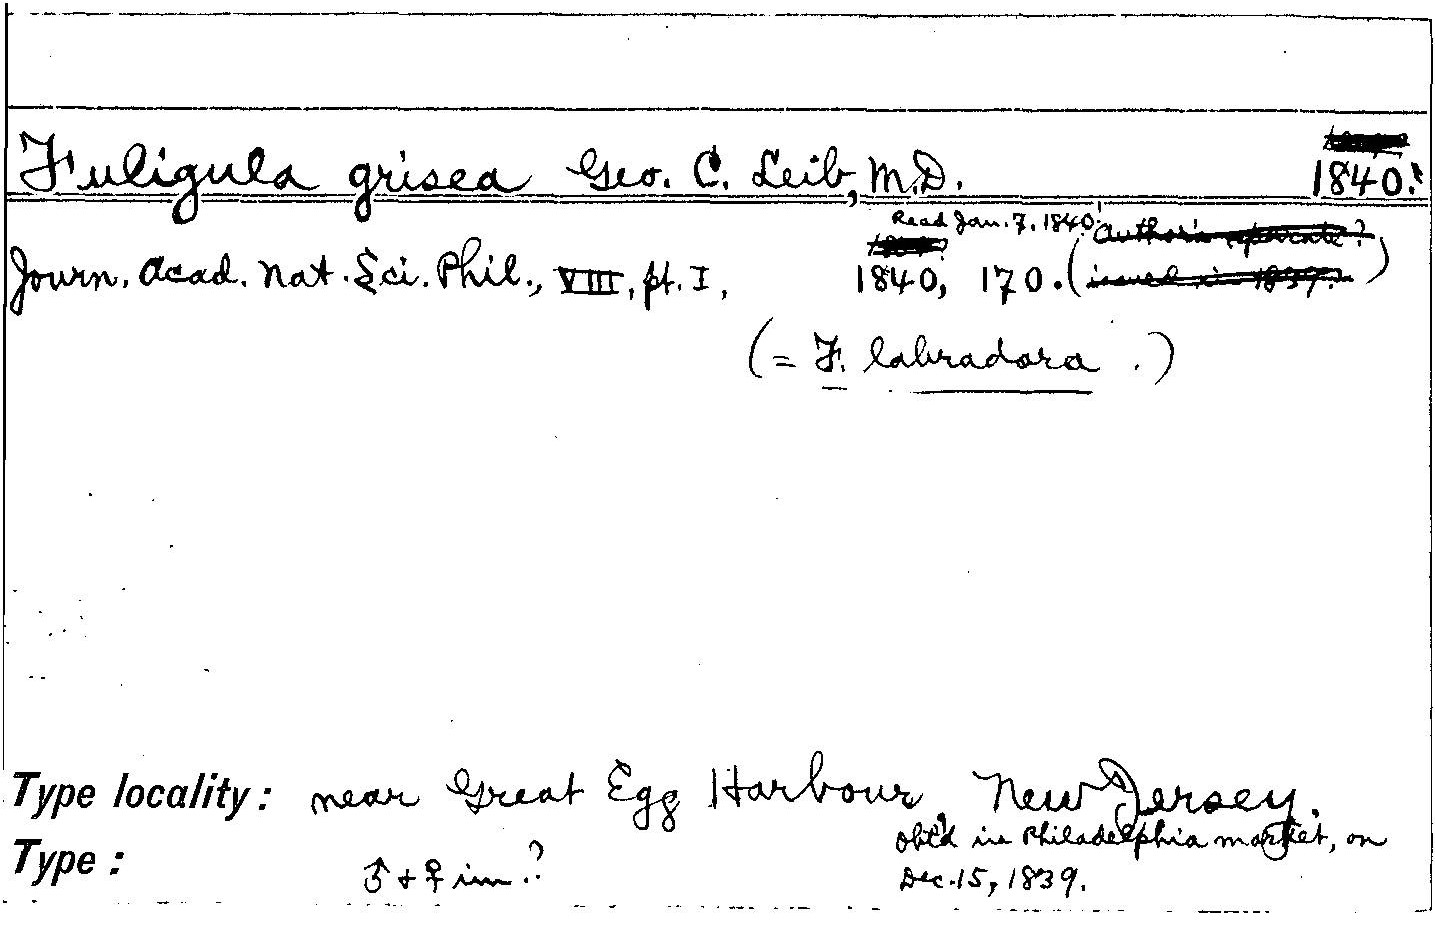 Fuligula grisea Geo. C. Leib, M.D. 1840.
Read Jan. 7, 1840.
Journ. Acad. Nat. Sci. Phil., VIII, pt. I, 1840, 170. (Author's separate?
issued in 1839?)
(= F. labradora.)
Type locality: near Great Egg Harbour, New Jersey.
Obt'd in Philadelphia market, on
Type: ♂ + ♀ im.? Dec. 15, 1839.